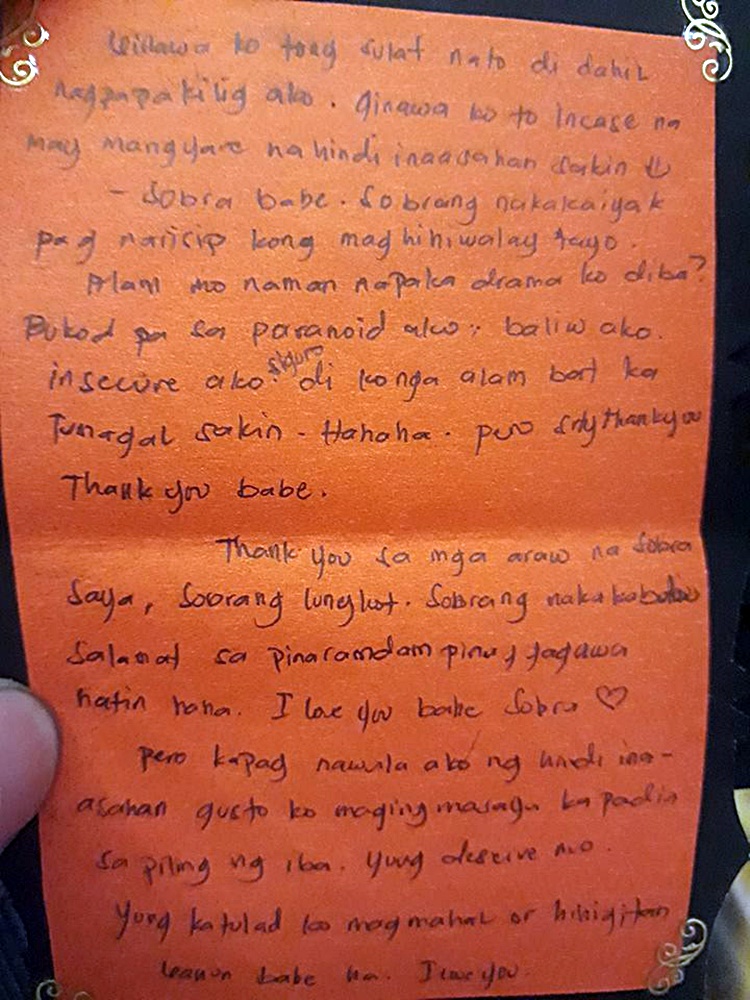 Ginawa ko tong sulat nato di dahil
nagpapakilig ako. Ginawa ko to incase na
may mangyare na hindi inaasahan sakin
- Sobra babe. Sobrang nakakaiyak
pag naiisip kong maghihiwalay tayo.
Alam mo naman napaka drama ko diba?
Bukod pa sa paranoid ako, baliw ako.
insecure ako siguro di ko nga alam bat ka
Tumagal sakin - Hahaha. pero srsly thankyou
Thank you babe.
Thank you sa mga araw na sobra
Saya, Sobrang lungkot. Sobrang nakakabaliw
Salamat sa pinaramdam
natin haha. I love you babe Sobra ♡
pero kapag nawala ako ng hindi ina-
asahan gusto ko maging masaya ka padin
sa piling ng iba. Yung deserve mo.
Yung katulad ko magmahal or hihigitan
babe ha. I love you.